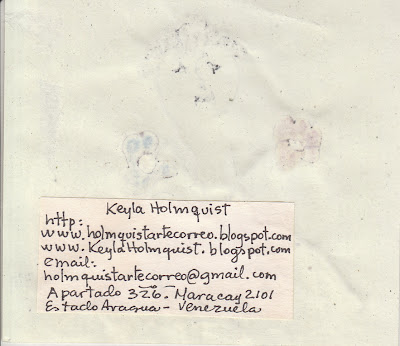 Keyla Holmquist
http:
www.holmquistartecorreo.blogspot.com
www.KeylaHolmquist.blogspot.com
email:
holmquistartecorreo@gmail.com
Apartado 326. Maracay 2101
Estado Aragua - Venezuela